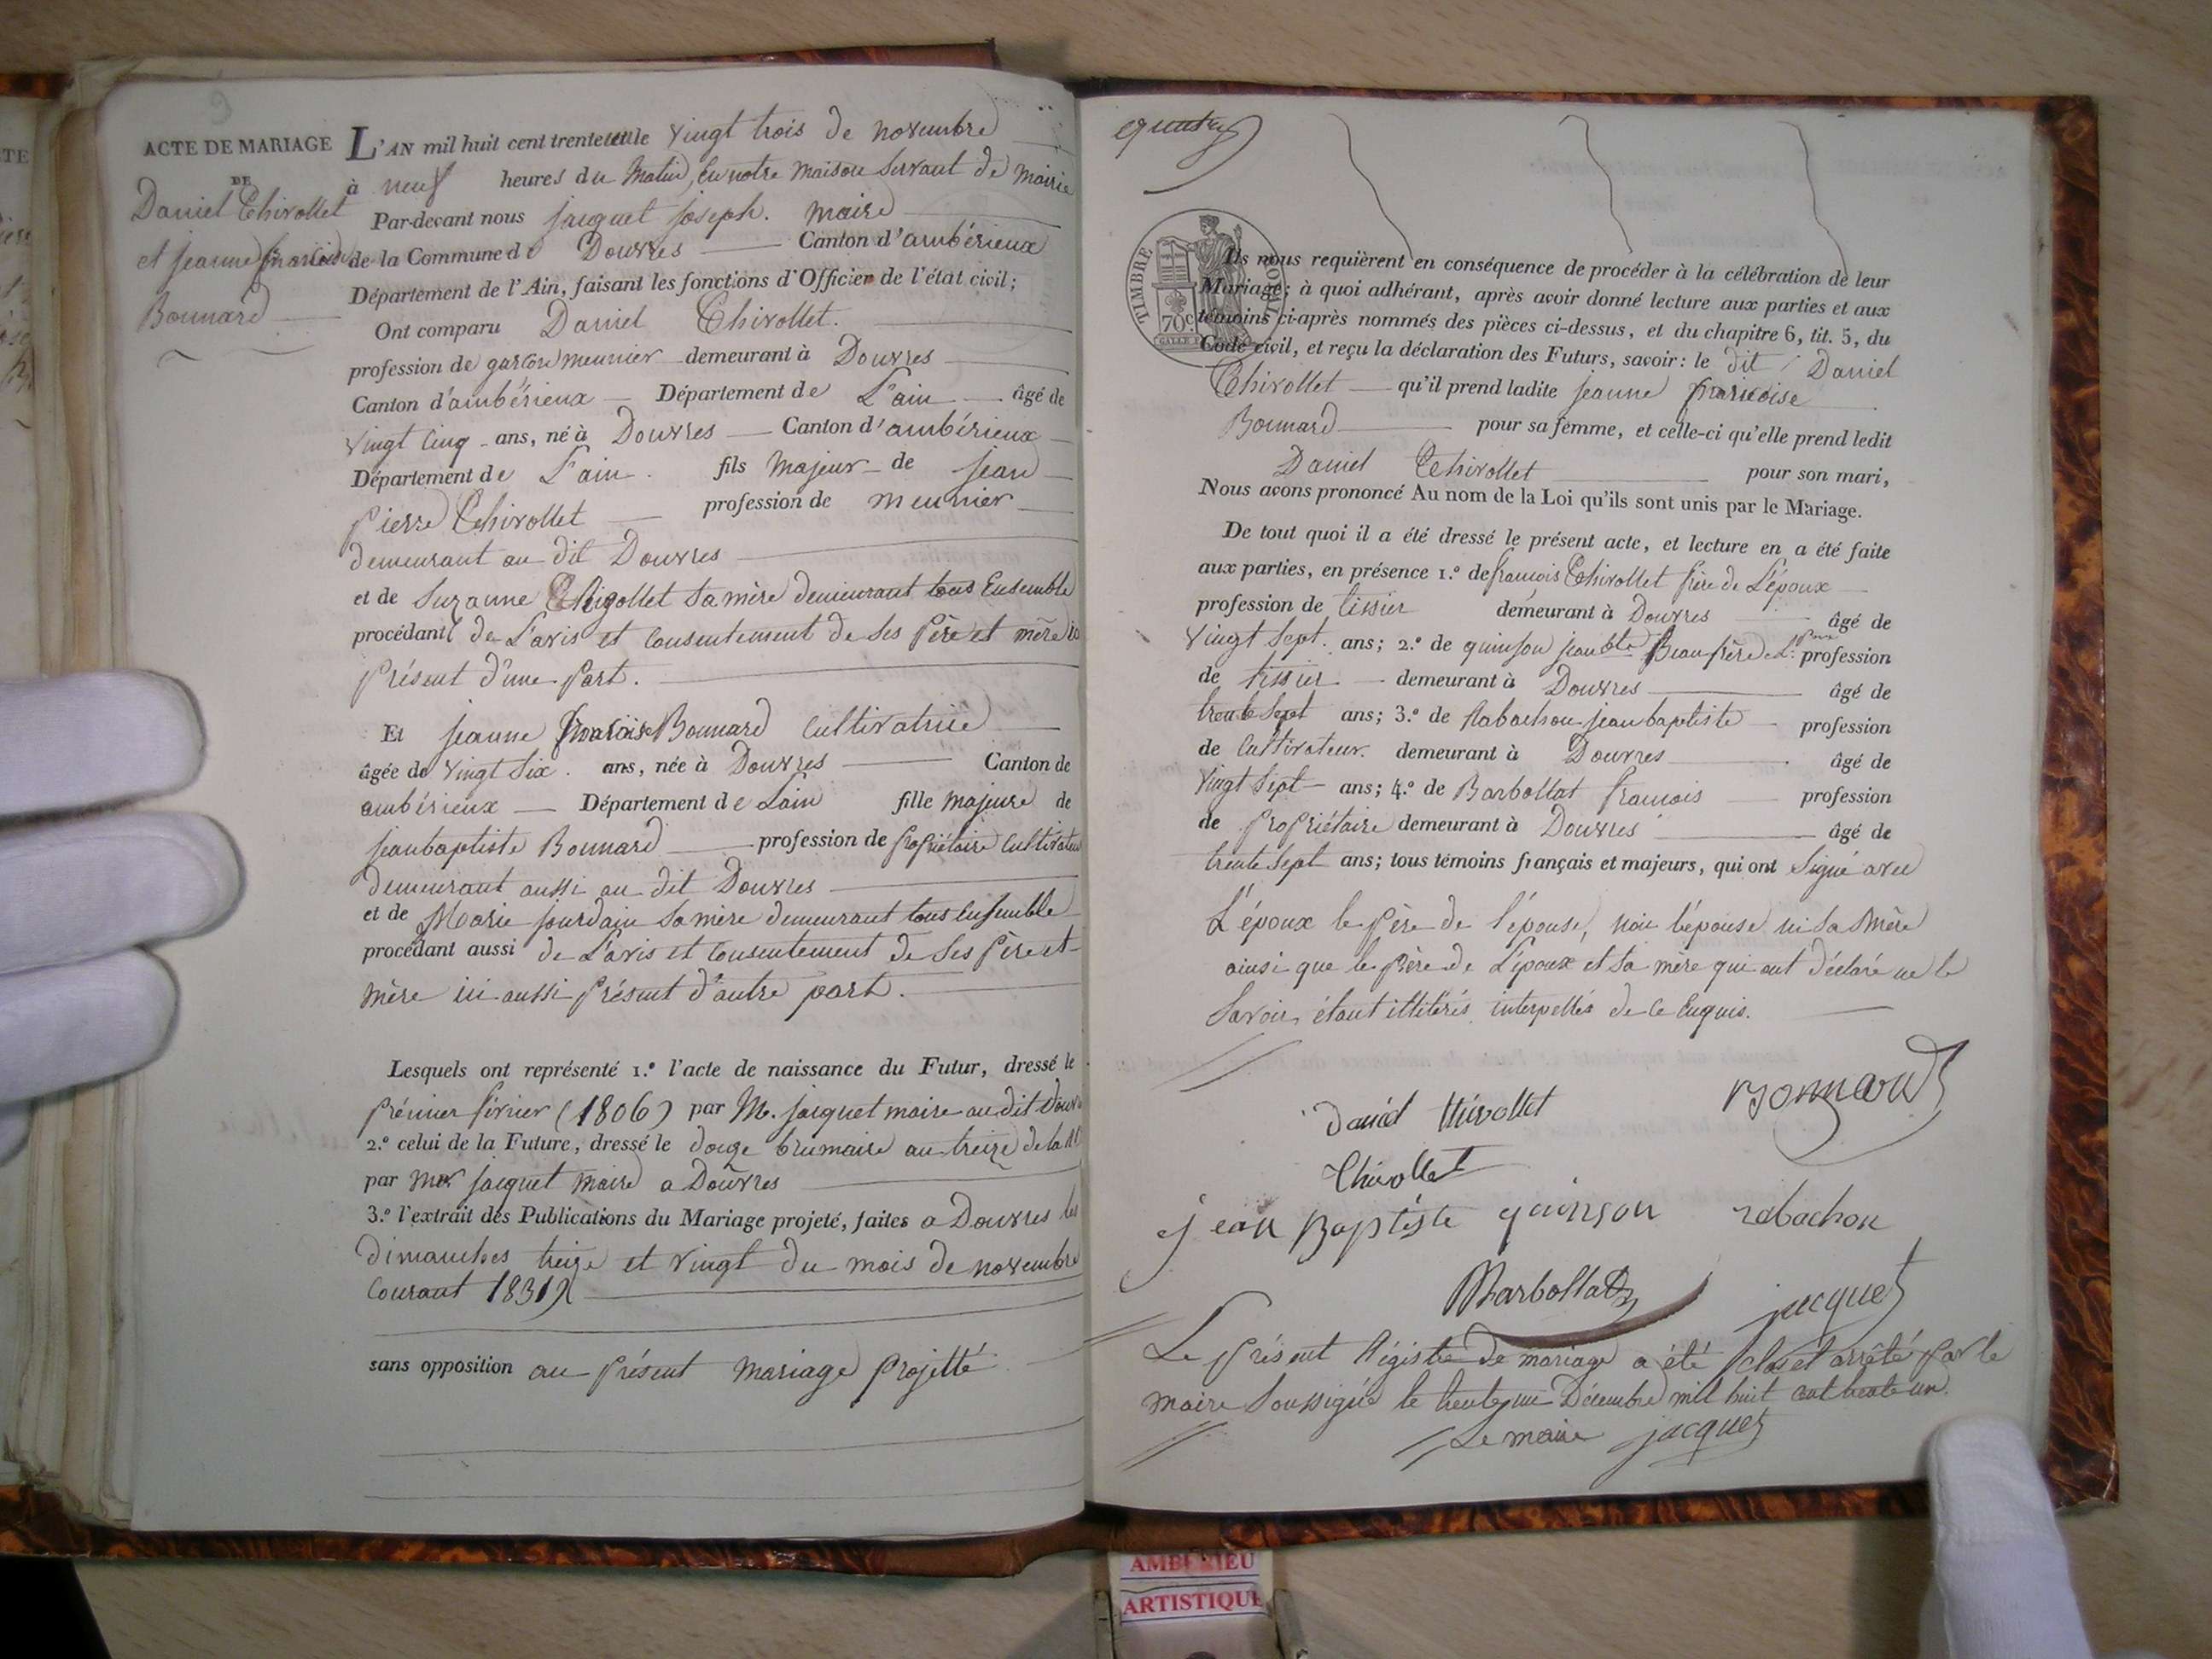 9
ACTE DE MARIAGE
DE
Daniel Thivollet
et jeanne françoise
Bonnard
L'AN mil huit cent trente et un le vingt trois de novembre
à neuf heures du Matin, en notre maison servant de mairie
Par-devant nous jacquet joseph. maire
de la Commune de Douvres Canton d'ambérieux
Département de l'Ain, faisant les fonctions d'Officier de l'état civil;
Ont comparu Daniel Thivollet.
profession de garçon meunier demeurant à Douvres
Canton d'ambérieux Département de L'ain âgé de
vingt cinq ans, né à Douvres Canton d'ambérieux
Département de L'ain. fils majeur de jean
pierre Thivollet profession de meunier
demeurant au dit Douvres
et de Suzanne Thivollet sa mère demeurant tous Ensemble
procédant de L'avis et consentement de ses père et mère ici
présent d'une part.
Et jeanne françoise Bonnard cultivatrice
âgée de vingt six. ans, née à Douvres Canton de
ambérieux Département de Lain fille majeure de
jeanbaptiste Bonnard profession de propriétaire cultivateur
demeurant aussi au dit Douvres
et de Marie jourdain sa mère demeurant tous ensemble
procédant aussi de L'avis et consentement de ses père et
mère ici aussi présent d'autre part.
Lesquels ont représenté 1.º l'acte de naissance du Futur, dressé le
prémier février (1806) par M. jacquet maire au dit Douvres
2.º celui de la Future, dressé le douze brumaire an treize de la R
par Mr jacquet maire a Douvres
3.º l'extrait des Publications du Mariage projeté, faites a Douvres les
dimanches treize et vingt du mois de novembre
courant 1831
sans opposition au présent mariage projetté
TIMBRE ROYAL
70c
Ils nous requièrent en conséquence de procéder à la célébration de leur
Mariage; à quoi adhérant, après avoir donné lecture aux parties et aux
témoins ci-après nommés des pièces ci-dessus, et du chapitre 6, tit. 5, du
Code civil, et reçu la déclaration des Futurs, savoir: le dit Daniel
Thivollet qu'il prend ladite jeanne françoise
Bonnard pour sa femme, et celle-ci qu'elle prend ledit
Daniel Thivollet pour son mari,
Nous avons prononcé Au nom de la Loi qu'ils sont unis par le Mariage.
De tout quoi il a été dressé le présent acte, et lecture en a été faite
aux parties, en présence 1.º de françois Thivollet frère de L'époux
profession de tissier demeurant à Douvres âgé de
vingt sept. ans; 2.º de quinson jean bte Beaufrère profession
de tissier demeurant à Douvres âgé de
trente sept ans; 3.º de Rabachon jeanbaptiste profession
de cultivateur. demeurant à Douvres âgé de
vingt sept ans; 4.º de Barbollat francois profession
de propriétaire demeurant à Douvres âgé de
trente sept ans; tous témoins français et majeurs, qui ont signé avec
L'époux le père de l'épouse, non l'épouse ni sa mère
ainsi que le père de L'époux et sa mère qui ont déclaré ne le
savoir, étant illitérés interpellés de ce Enquis.
daniel thivollet Bonnard
Thivollet
jean Baptiste quinson rabachon
Barbollat jacquet
Le présent Régistre de mariage a été clos et arrêté par le
maire soussigné le trente un Décembre mil huit cent trente un.
Le maire jacquet
AMBERIEU
ARTISTIQUE